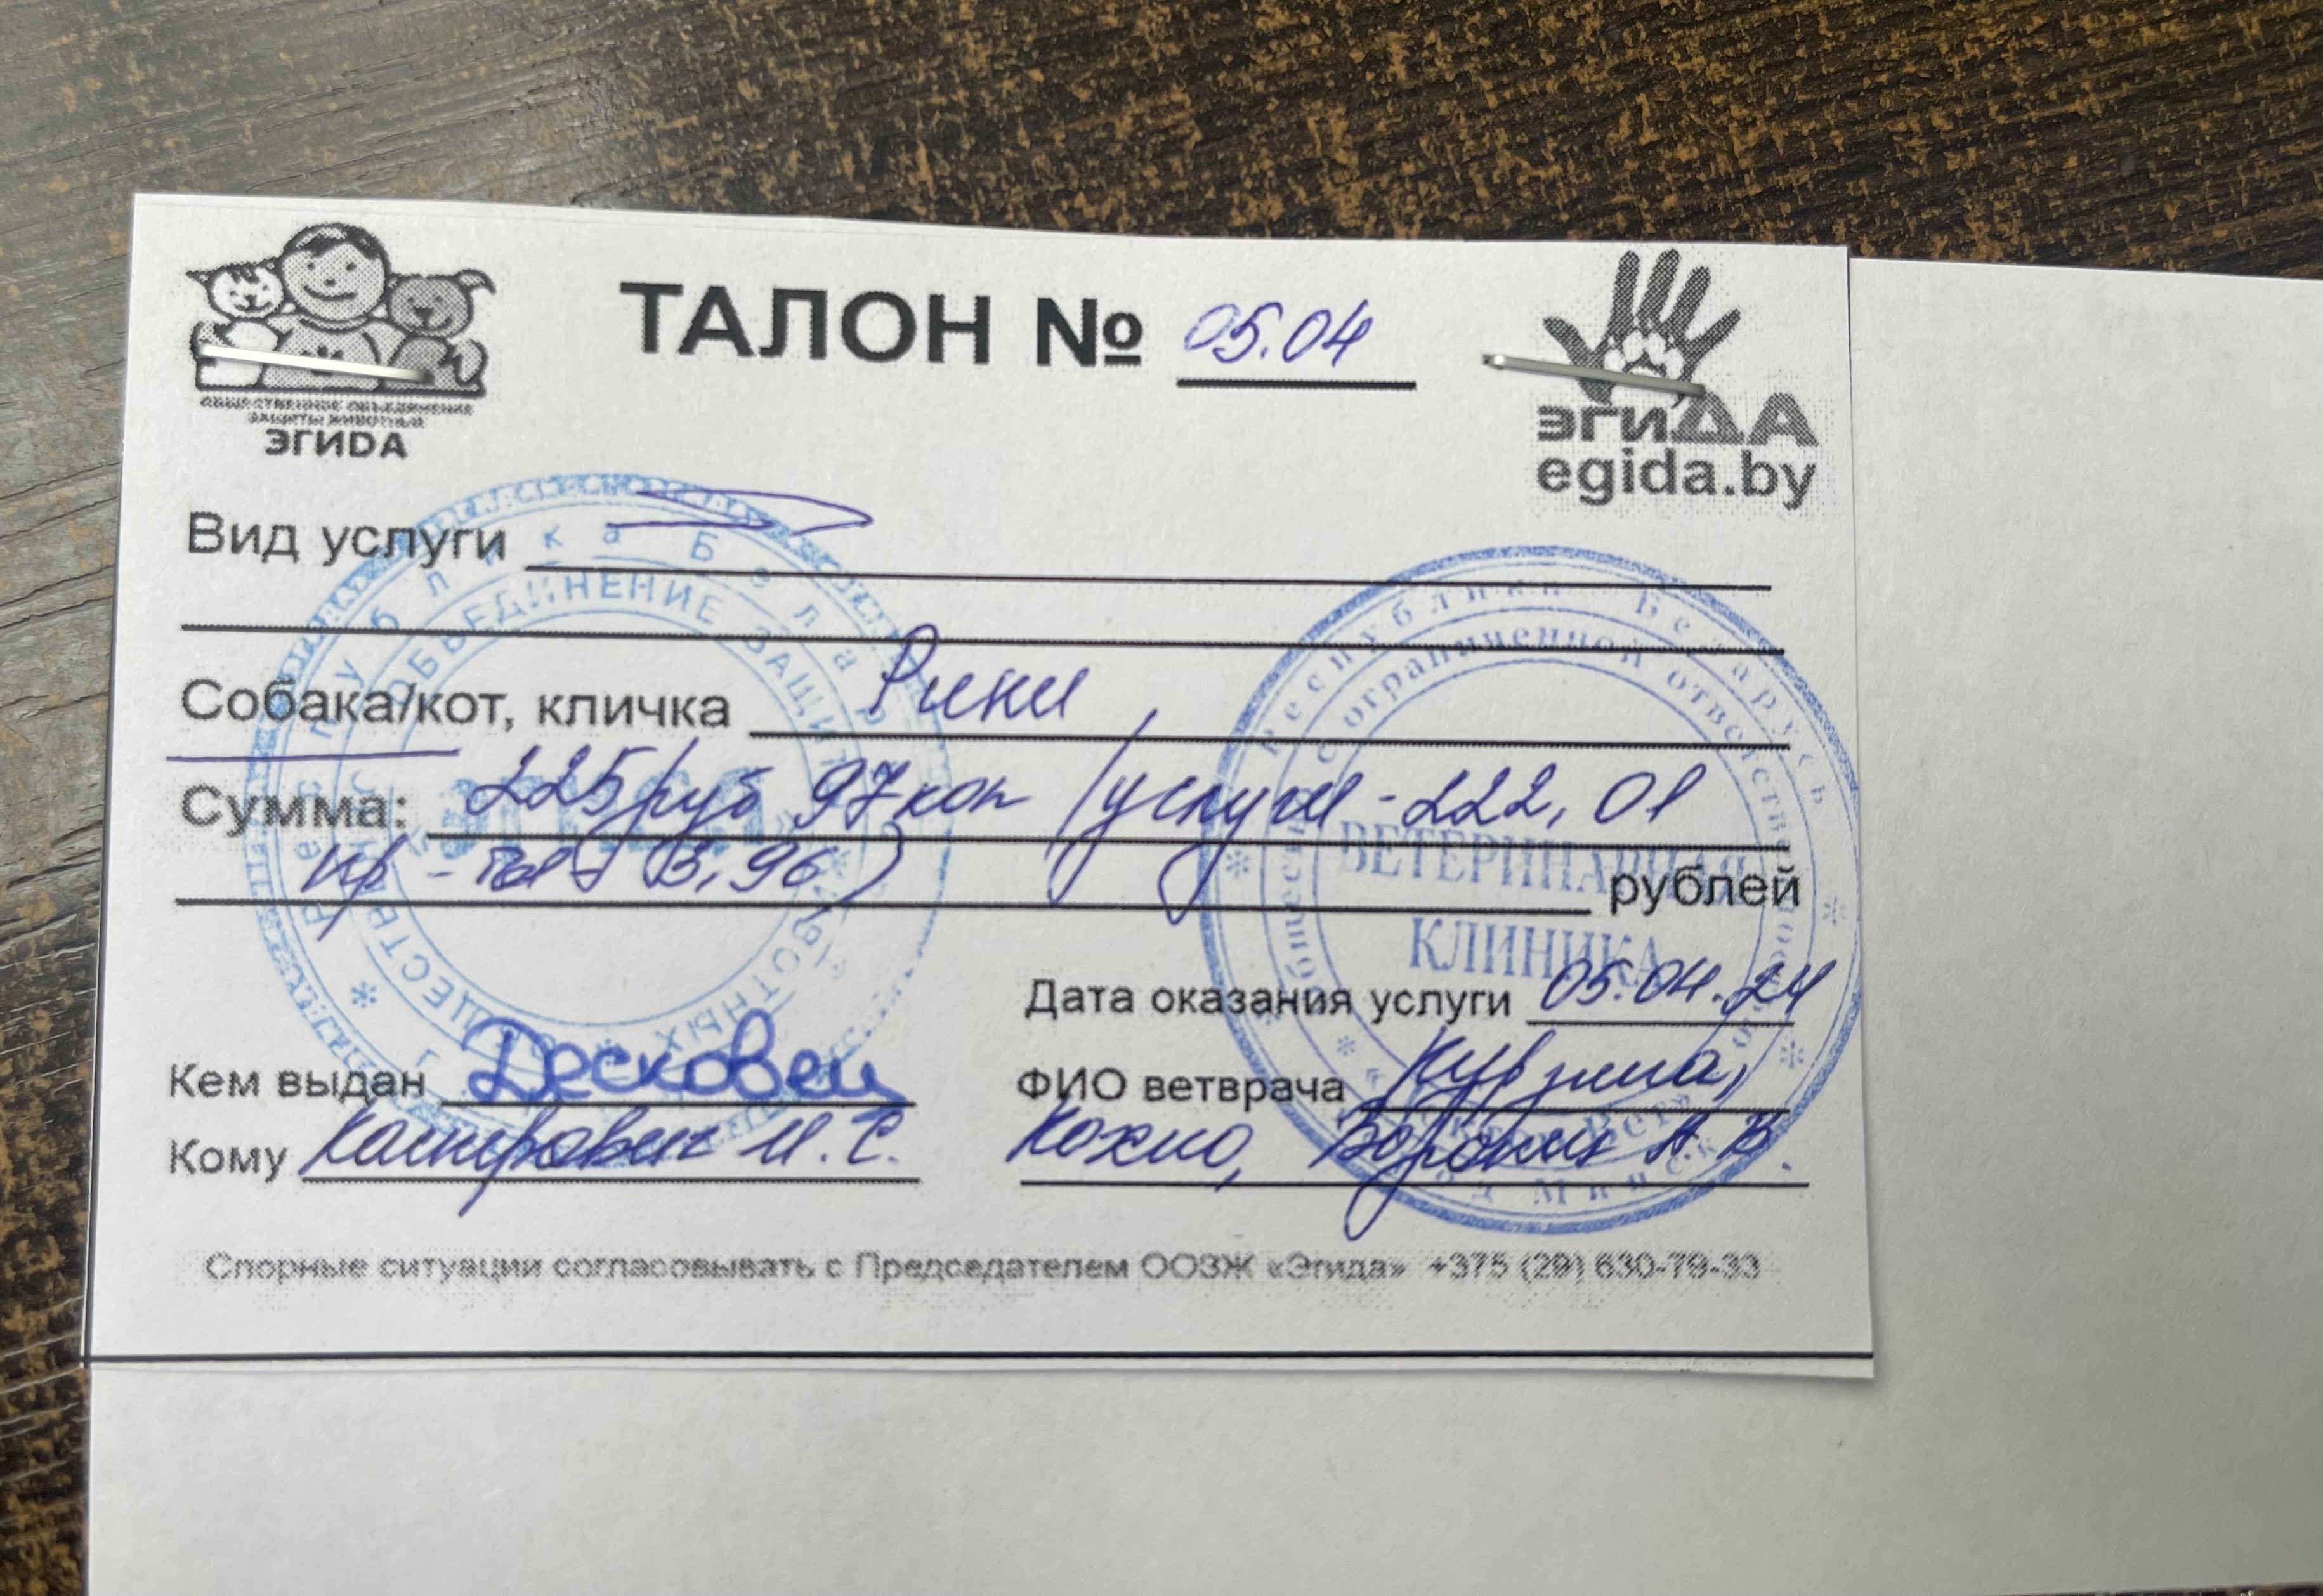 ТАЛОН № 05.04
ОБЩЕСТВЕННОЕ ОБЪЕДИНЕНИЕ
ЗАЩИТЫ ЖИВОТНЫХ
ЭГИДА
эгиДА
egida.by
Вид услуги
Собака/кот, кличка Рики
Сумма: 225 руб 97 коп (услуги - 222, 01
пр - 3,96) рублей
Дата оказания услуги 05.04.24
Кем выдан Десковец
ФИО ветврача
Кому И.С.
Кохно, Воронин А.В.
Спорные ситуации согласовывать с Председателем ООЗЖ «Эгида» +375 (29) 630-79-33
Республика Беларусь
ОБЪЕДИНЕНИЕ ЗАЩИТЫ ЖИВОТНЫХ
Республики Беларусь
с ограниченной ответственностью
ВЕТЕРИНАРНАЯ
КЛИНИКА